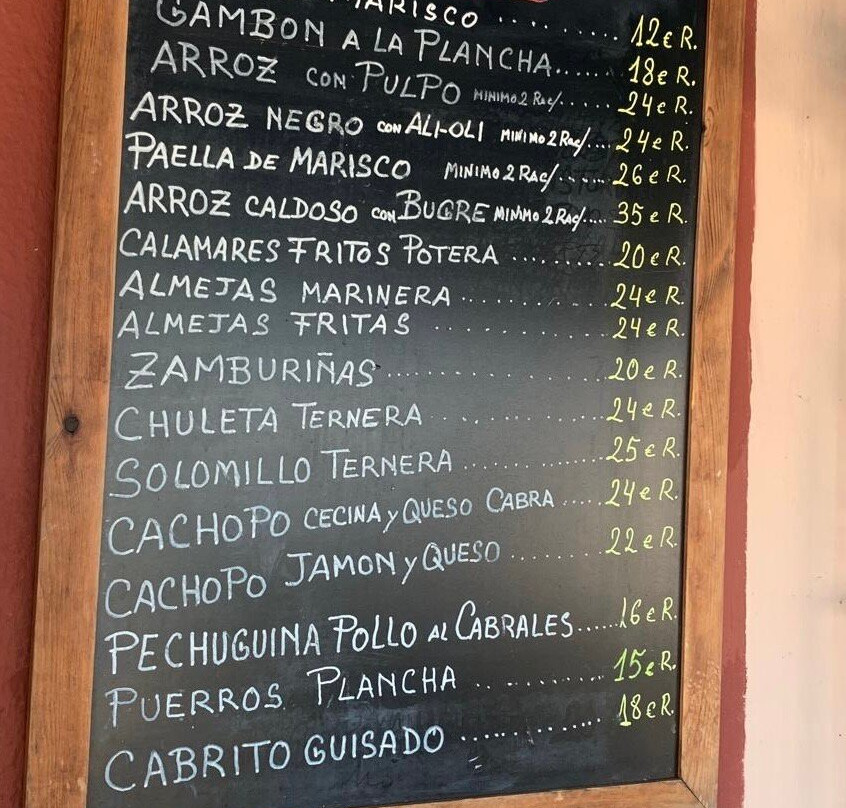 MARISCO ......... 12€ R.
GAMBON A LA PLANCHA...... 18€ R.
ARROZ CON PULPO MINIMO 2 Rac/...... 24€ R.
ARROZ NEGRO CON ALI-OLI MINIMO 2 Rac/.... 24€ R.
PAELLA DE MARISCO MINIMO 2 RAC/...... 26€ R.
ARROZ CALDOSO CON BUGRE MINIMO 2 RAC/.... 35€ R.
CALAMARES FRITOS POTERA .......... 20€ R.
ALMEJAS MARINERA ............ 24€ R.
ALMEJAS FRITAS ............ 24€ R.
ZAMBURIÑAS .................. 20€ R.
CHULETA TERNERA ............ 24€ R.
SOLOMILLO TERNERA ............ 25€ R.
CACHOPO CECINA y QUESO CABRA ..... 24€ R.
CACHOPO JAMON y QUESO ......... 22€ R.
PECHUGUINA POLLO AL CABRALES...... 16€ R.
PUERROS PLANCHA ........... 15€ R.
CABRITO GUISADO .............. 18€ R.